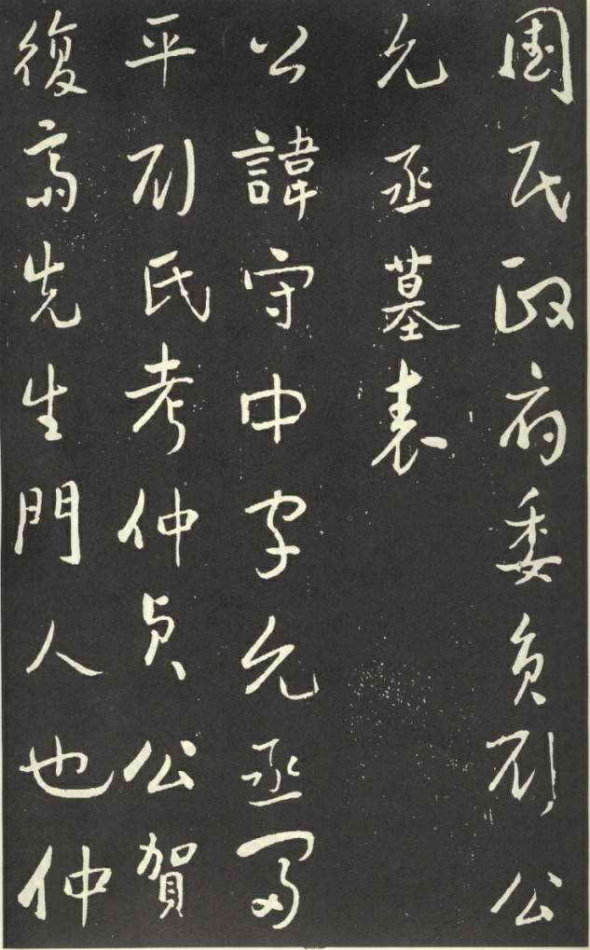 國民政府委員劉公
允丞墓表
公諱守中字允丞富
平劉氏考仲貞公賀
復齋先生門人也仲